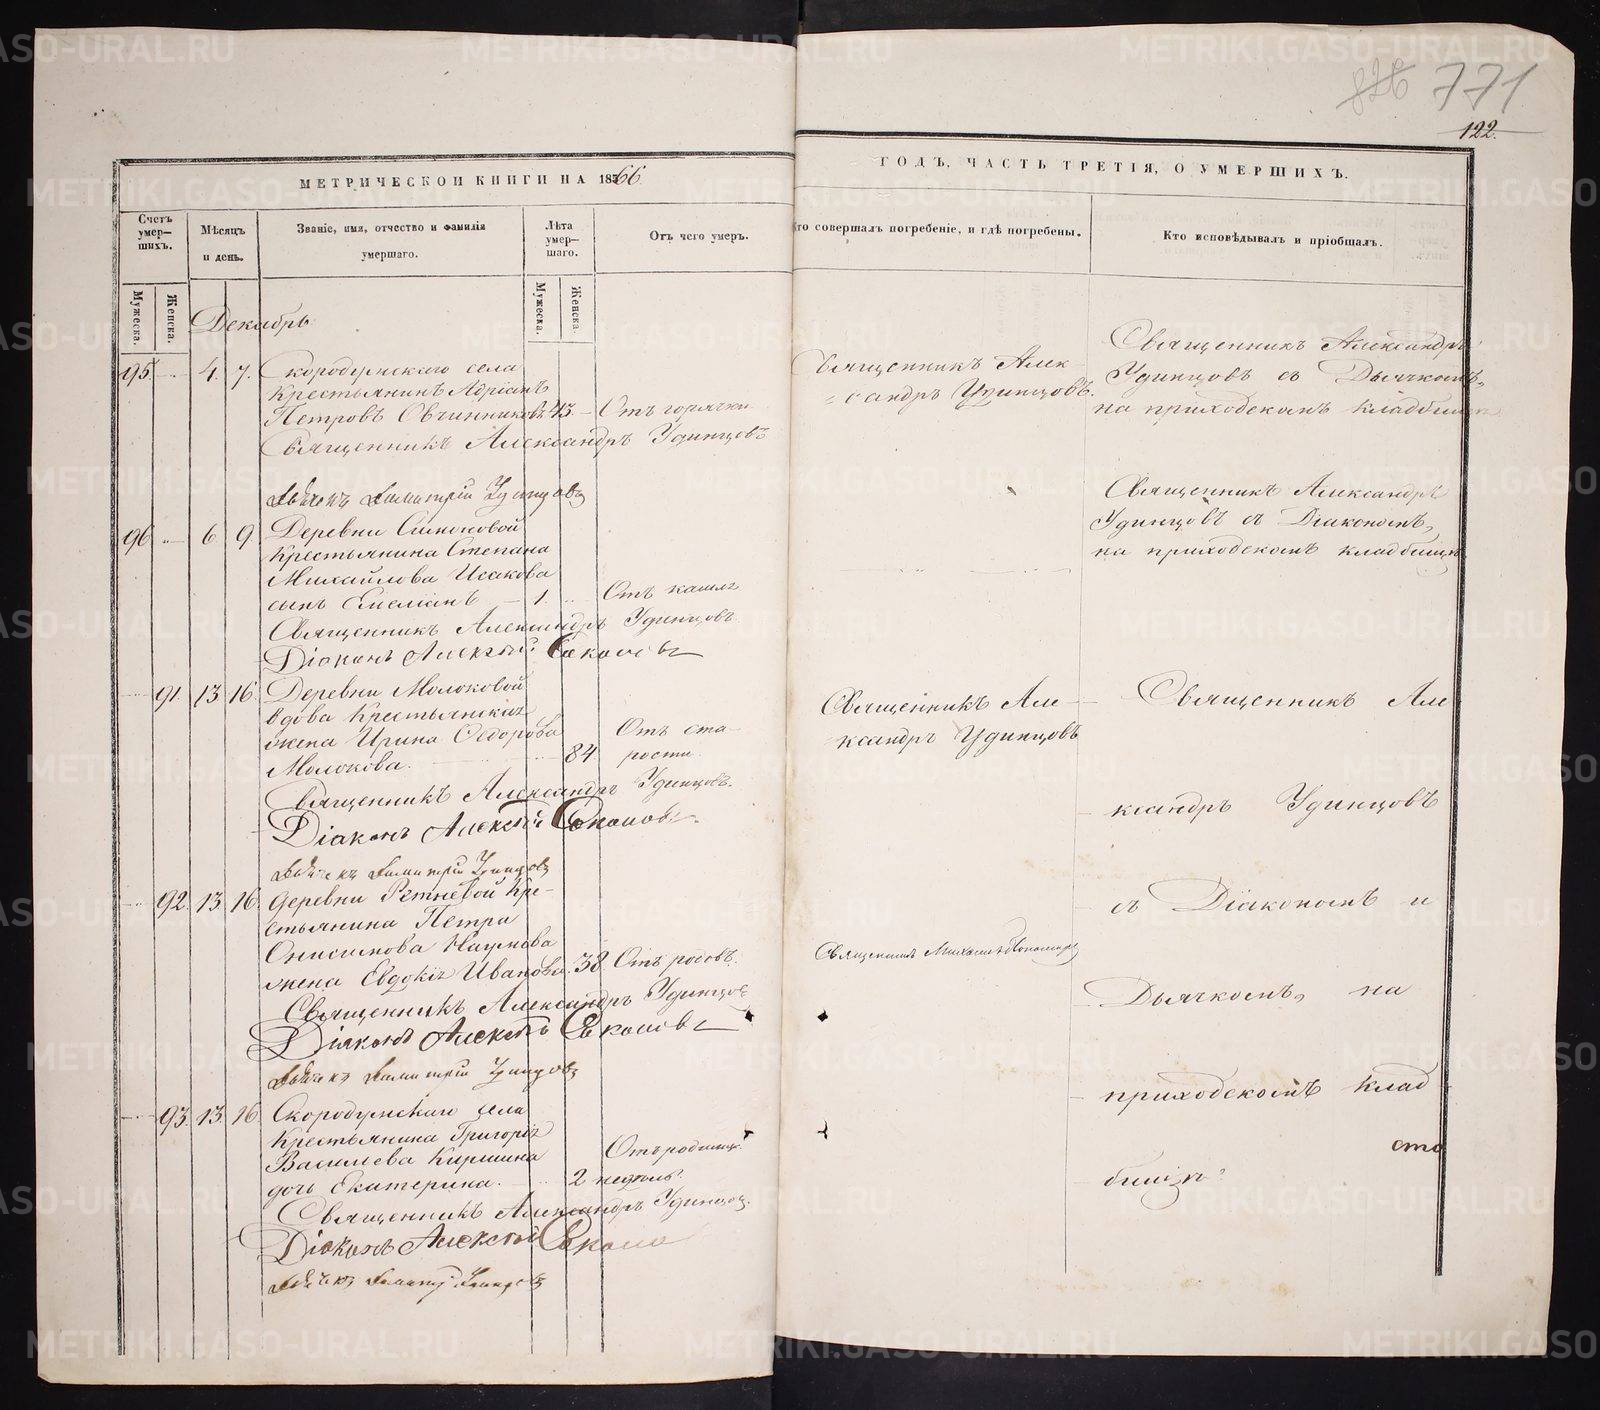 826 771
122.
МЕТРИЧЕСКОЙ КНИГИ НА 1866
ГОДЪ, ЧАСТЬ ТРЕТІЯ, О УМЕРШИХЪ.
Счетъ умер–шихъ.
Мѣсяцъ и день.
Званіе, имя, отчество и фамилія умершаго.
Лѣта умер–шаго.
Отъ чего умеръ.
Кто совершалъ погребеніе, и гдѣ погребены.
Кто исповѣдывалъ и пріобщалъ.
Мужеска.
Женска.
Мужеска.
Женска.
Декабрь
95. 4. 7. Скородумскаго села
крестьянинъ Адріанъ
Петровъ Овчинниковъ 43 – Отъ горячки
Священникъ Александръ Удинцовъ
Дьячекъ Димитрій Удинцовъ
96 6 9 Деревни Симоновой
крестьянина Степана
Михайлова Исакова
сынъ Емеліанъ – 1. Отъ кашля
Священникъ Александръ Удинцовъ
Діаконъ Алексѣй Соколовъ
91. 13 16 Деревни Молоковой
вдова крестьянская
жена Ирина Ѳедорова
Молокова. 84 Отъ ста–
рости.
Священникъ Александръ Удинцовъ.
Діаконъ Алексѣй Соколовъ.
Дьячекъ Димитрій Удинцовъ
92. 13. 16. Деревни Ретневой кре–
стьянина Петра
Онисимова Наумова
жена Евдокія Иванова. 38. Отъ родовъ.
Священникъ Александръ Удинцовъ
Діаконъ Алексѣй Соколовъ
Дьячекъ Димитрій Удинцовъ
93. 13. 16 Скородумскаго села
крестьянина Григорія
Васильева Киршина
дочь Екатерина. 2 недѣль. Отъ родимца
Священникъ Александръ Удинцов.
Діаконъ Алексѣй Соколо
Дьячекъ Димитрій Удинцовъ
Священникъ Алек
сандръ Удинцовъ.
Священникъ Але–
ксандръ Удинцовъ
Священникъ Михаилъ
Священникъ Александръ
Удинцовъ съ Дьячкомъ,
на приходскомъ кладбищѣ
Священникъ Александръ
Удинцовъ съ Діакономъ,
на приходскомъ кладбищѣ
Священникъ Але
ксандръ Удинцовъ
съ Діакономъ и
Дьячкомъ, на
приходскомъ клад
бищѣ
сто
METRIKI.GASO-URAL.RU